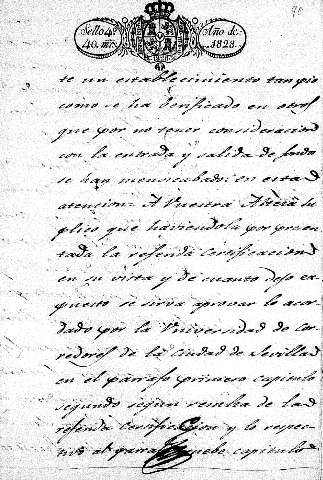 Sello 4º
40. mrs.
Año de
1828.
te un establecimiento tan pio
como se ha berificado en otros
que por no tener consideracion
con la entrada y salida de fondos
se han menoscabado: en esta
atencion = A Vuestra Alteza su
plico que haviendola por presen
tada la referida certificacion
en su vista y de cuanto dejo ex
puesto se sirva aprovar lo acor
dado por la Universidad de co
rredores de la Ciudad de Sevilla
en el parrafo primero capitulo
segundo segun resulta de la
referida certificacion y lo respec
tivo al parrafo nuebe capitulo